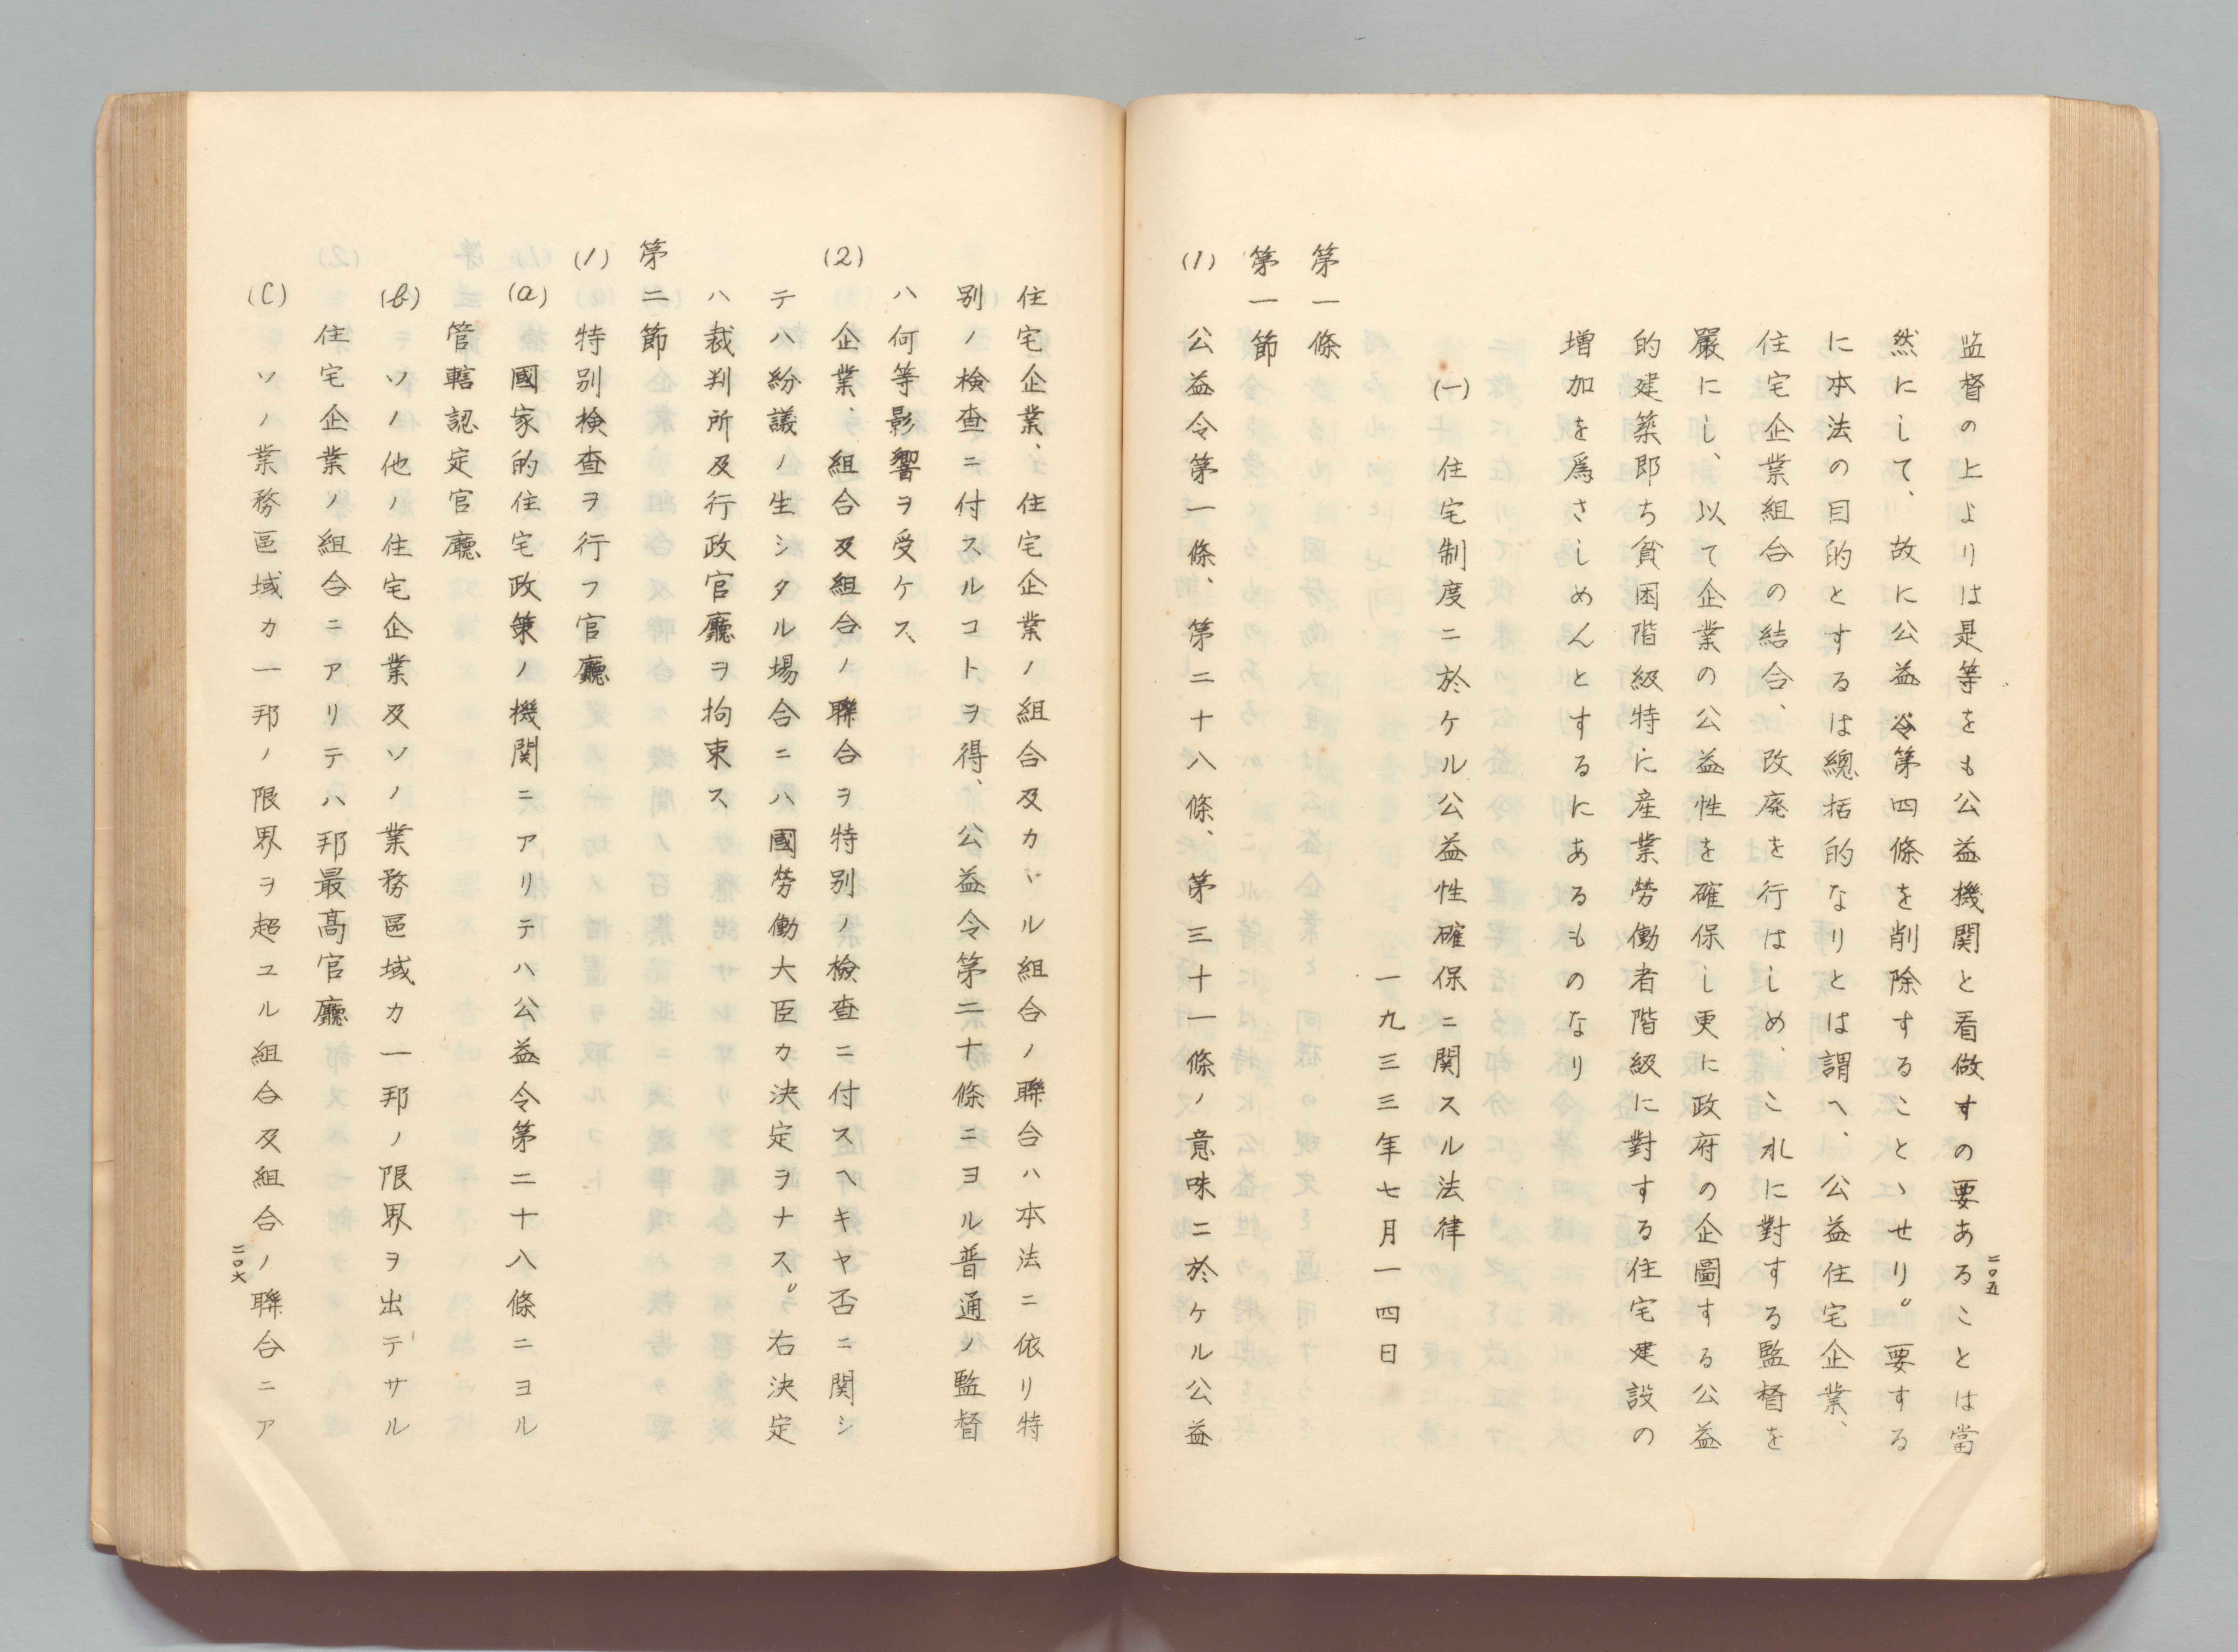 監督の上よりは是等をも公益機関と看做すの要あることは當
然にして、故に公益令第四條を削除することゝせり。要する
に本法の目的とするは總括的なりとは謂へ、公益住宅企業、
住宅企業組合の結合、改廃を行はしめ、これに對する監督を
嚴にし、以て企業の公益性を確保し更に政府の企圖する公益
的建築即ち貧困階級特に産業勞働者階級に對する住宅建設の
増加を爲さしめんとするにあるものなり
(一) 住宅制度ニ於ケル公益性確保ニ関スル法律
一九三三年七月一四日
第一條
第一節
(1) 公益令第一條、第二十八條、第三十一條ノ意味ニ於ケル公益
二〇五
住宅企業、住宅企業ノ組合及カヽル組合ノ聯合ハ本法ニ依リ特
別ノ検査ニ付スルコトヲ得、公益令第二十條ニヨル普通ノ監督
ハ何等影響ヲ受ケス、
(2) 企業、組合及組合ノ聯合ヲ特別ノ檢查ニ付スヘキヤ否ニ関シ
テハ紛議ノ生シタル場合ニハ國勞働大臣カ決定ヲナス。右決定
ハ裁判所及行政官廳ヲ拘束ス
第二節
(1) 特別検査ヲ行フ官廳
(a) 國家的住宅政策ノ機関ニアリテハ公益令第二十八條ニヨル
管轄認定官廳
(b) ソノ他ノ住宅企業及ソノ業務區域カ一邦ノ限界ヲ出テサル
住宅企業ノ組合ニアリテハ邦最高官廳
(C) ソノ業務區域カ一邦ノ限界ヲ超ユル組合及組合ノ聯合ニア
二〇六